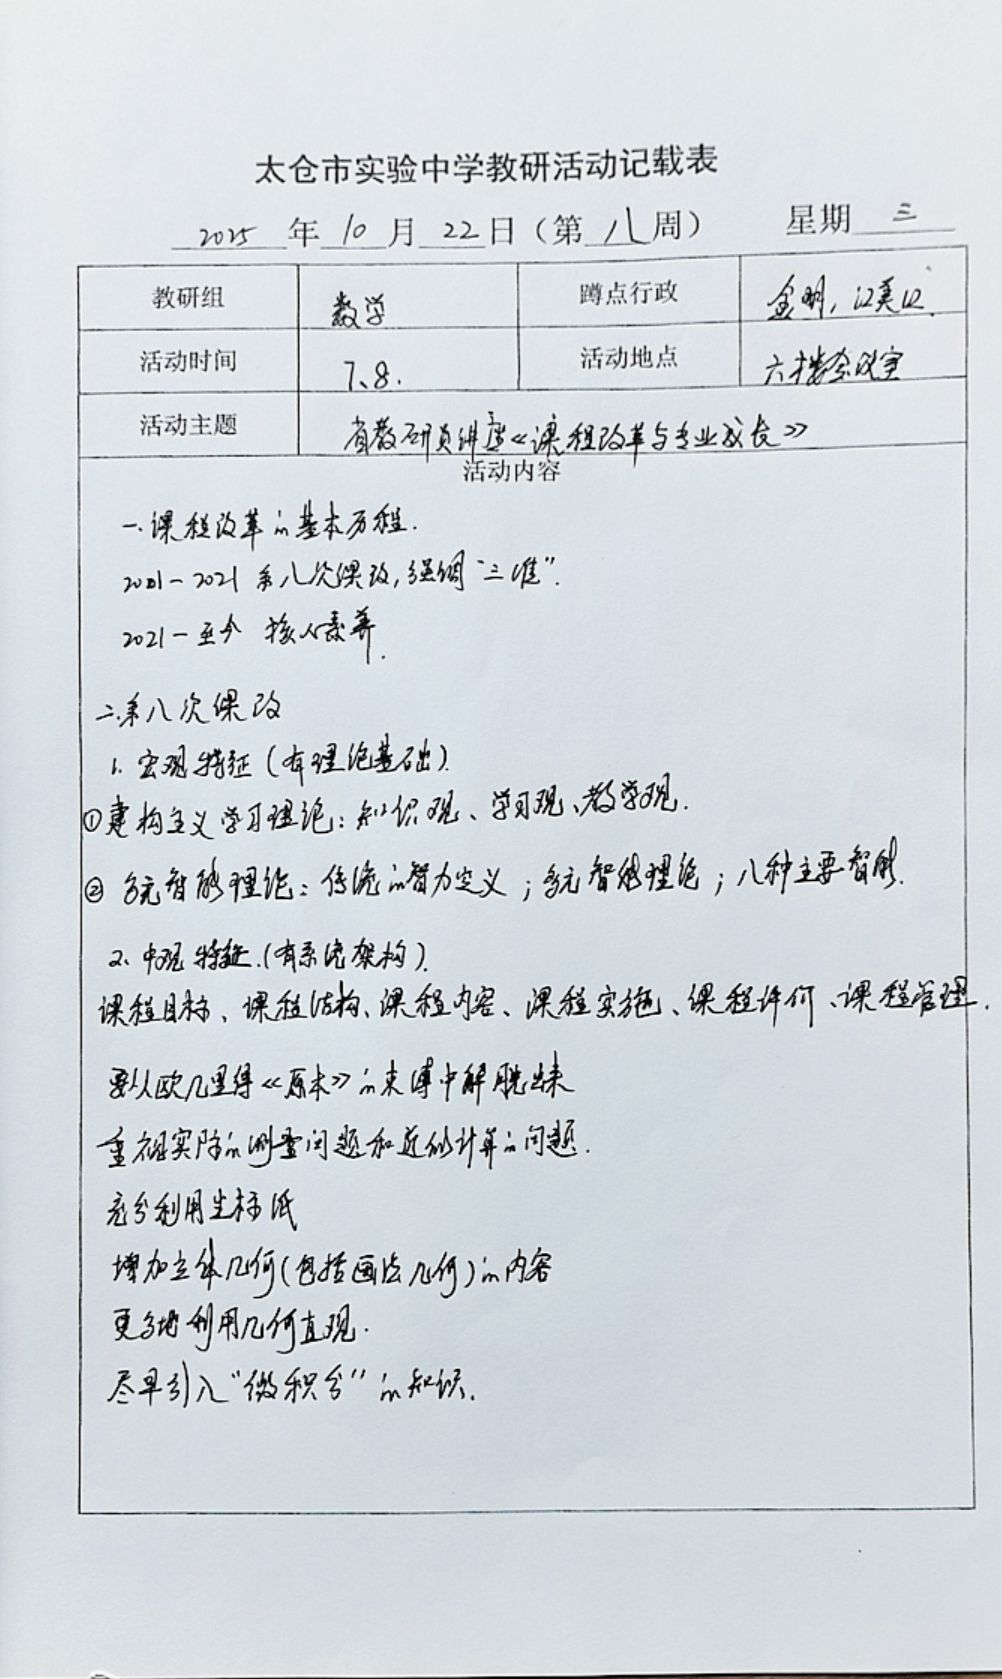 太仓市实验中学教研活动记载表
2025 年 10 月 22 日（第 八 周） 星期 三
教研组 数学 蹲点行政 金明，江美
活动时间 7、8. 活动地点 六楼会议室
活动主题 省教研员讲座《课程改革与专业成长》
活动内容
一. 课程改革的基本历程.
2001－2021 第八次课改，强调“三维”.
2021－至今 核心素养.
二. 第八次课改
1. 宏观特征（有理论基础）.
①建构主义学习理论：知识观、学习观、教学观.
② 多元智能理论：传统的智力定义；多元智能理论；八种主要智能.
2. 中观特征.（有系统架构）.
课程目标、课程结构、课程内容、课程实施、课程评价、课程管理.
要从欧几里得《原本》的束缚中解脱出来
重视实际的测量问题和近似计算的问题.
充分利用坐标纸
增加立体几何（包括画法几何）的内容
更多地利用几何直观.
尽早引入“微积分”的知识.